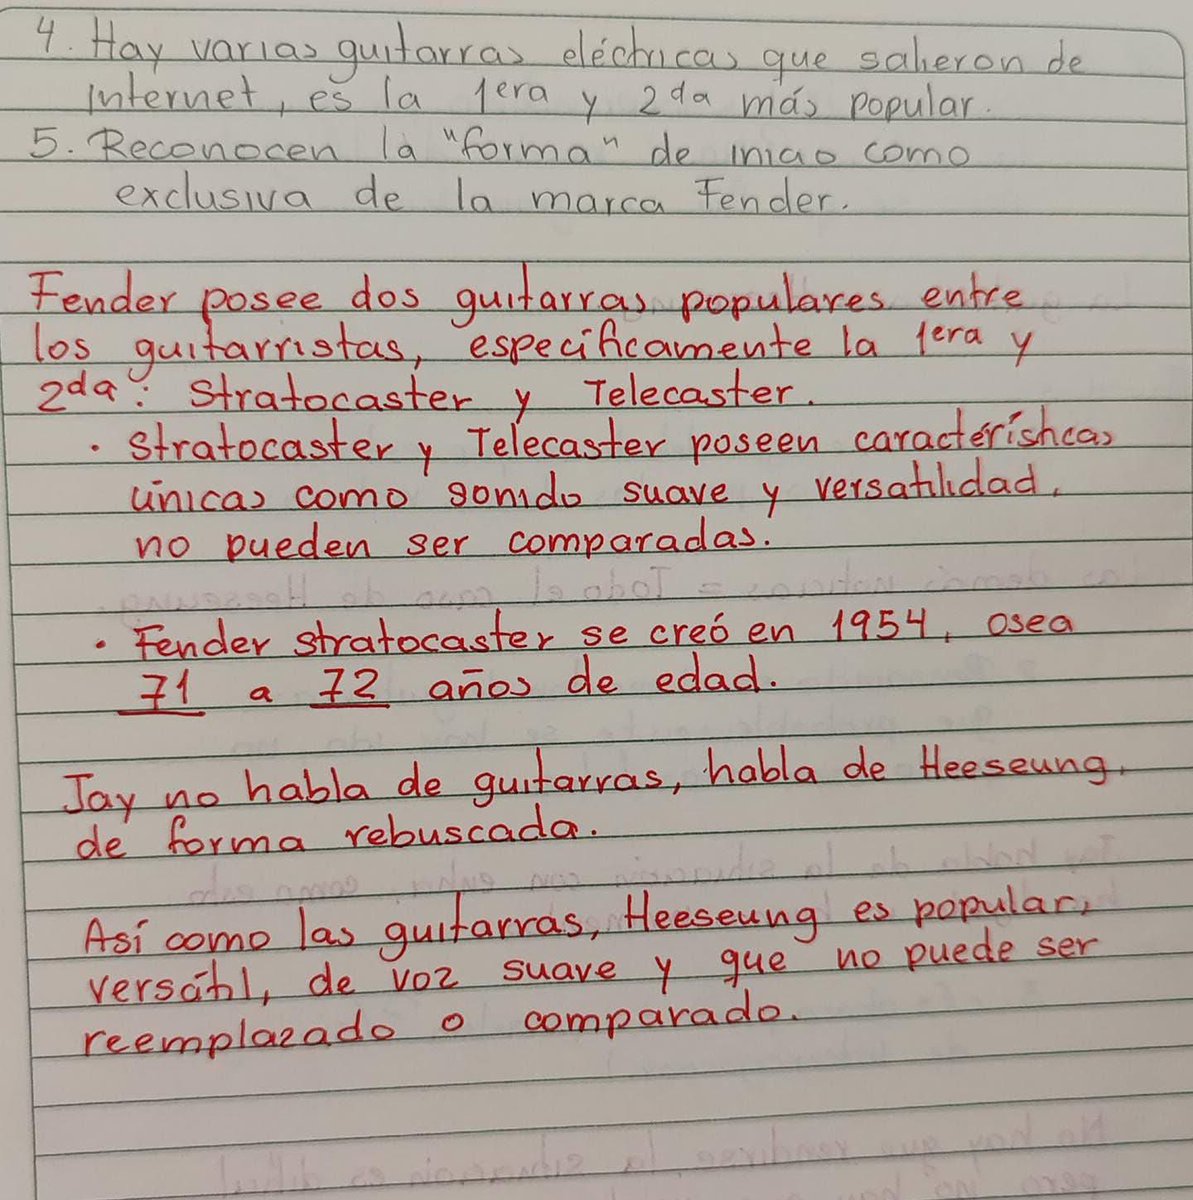 4. Hay varias guitarras eléctricas que salieron de
Internet, es la 1era y 2da más popular.
5. Reconocen la "forma" de inicio como
exclusiva de la marca Fender.
Fender posee dos guitarras populares entre
los guitarristas, específicamente la 1era y
2da: Stratocaster y Telecaster.
· Stratocaster y Telecaster poseen caractérísticas
únicas como sonido suave y versatilidad,
no pueden ser comparadas.
· Fender stratocaster se creó en 1954, osea
71 a 72 años de edad.
Jay no habla de guitarras, habla de Heeseung,
de forma rebuscada.
Así como las guitarras, Heeseung es popular,
versátil, de voz suave y que no puede ser
reemplazado o comparado.